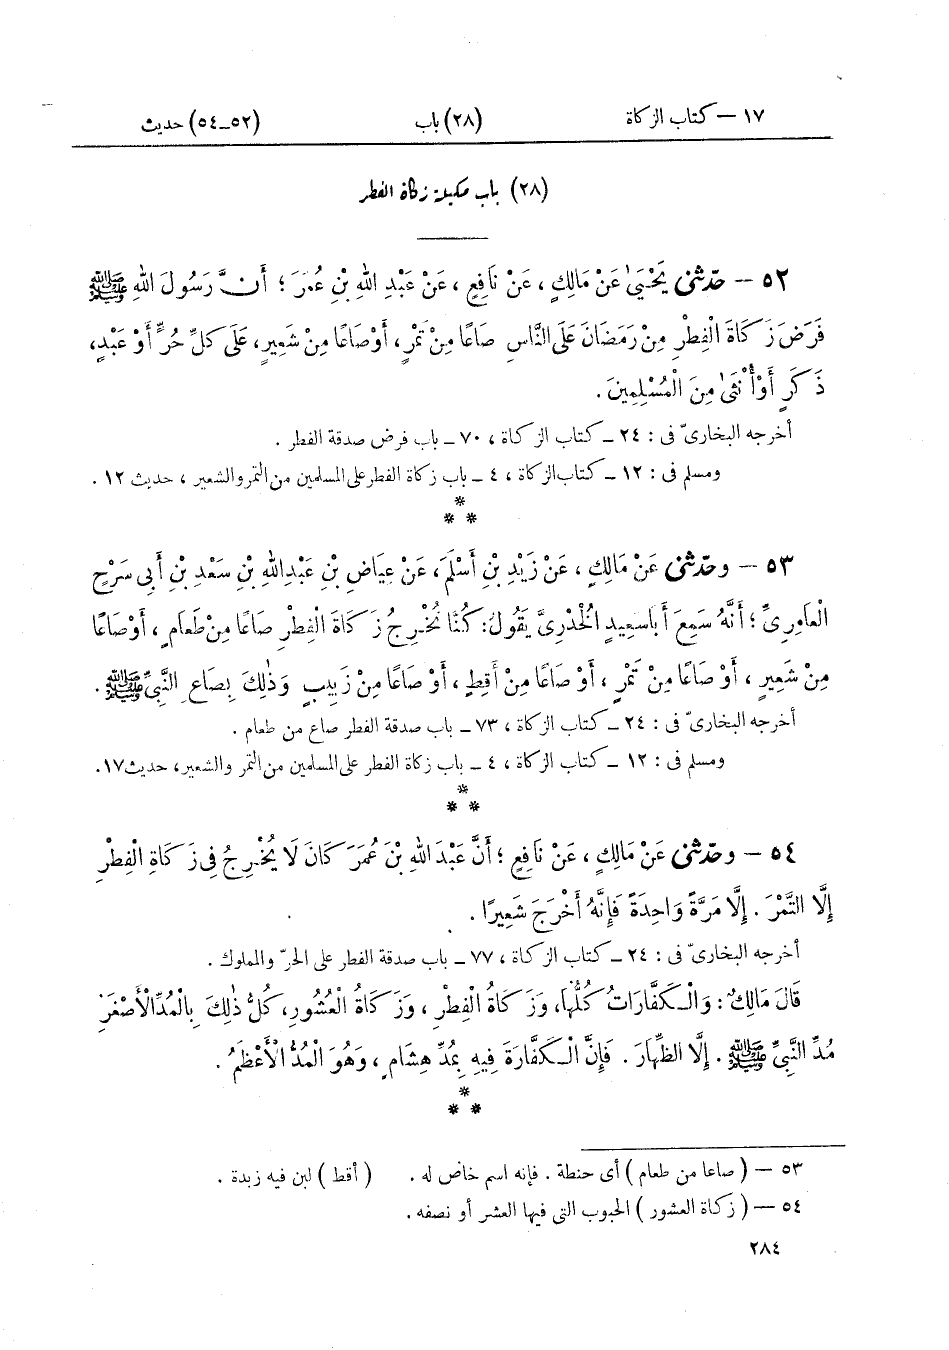 ١٧ — كتاب الزكاة (٢٨) باب (٥٢ــ٥٤) حديث
(٢٨) باب مكيلة زكاة الفطر
٥٢ — حدّثنى يَحْيَىٰ عَنْ مَالِكٍ ، عَنْ نَافِعٍ ، عَنْ عَبْدِ اللهِ بْنِ عُمَرَ ؛ أَنَّ رَسُولَ اللهِ ﷺ
فَرَضَ زَكَاةَ الْفِطْرِ مِنْ رَمَضَانَ عَلَى النَّاسِ صَاعًا مِنْ تَمْرٍ، أَوْ صَاعًا مِنْ شَعِيرٍ، عَلَى كلِّ حُرٍّ أَوْ عَبْدٍ،
ذَكَرٍ أَوْ أُنْثَىٰ مِنَ الْمُسْلِمِينَ .
أخرجه البخارىّ فى : ٢٤ ــ كتاب الزكاة ، ٧٠ ــ باب فرض صدقة الفطر .
ومسلم فى : ١٢ ــ كتاب الزكاة ، ٤ ــ باب زكاة الفطر على المسلمين من التمر والشعير ، حديث ١٢ .
*
* *
٥٣ — وحدّثنى عَنْ مَالِكٍ ، عَنْ زَيْدِ بْنِ أَسْلَمَ، عَنْ عِيَاضِ بْنِ عَبْدِ اللهِ بْنِ سَعْدِ بْنِ أَبِى سَرْحٍ
الْعَامِرِىِّ ؛ أَنَّهُ سَمِعَ أَبَا سَعِيدٍ الْخُدْرِىَّ يَقُولُ: كُنَّا نُخْرِجُ زَكَاةَ الْفِطْرِ صَاعًا مِنْ طَعَامٍ ، أَوْ صَاعًا
مِنْ شَعِيرٍ ، أَوْ صَاعًا مِنْ تَمْرٍ ، أَوْ صَاعًا مِنْ أَقِطٍ ، أَوْ صَاعًا مِنْ زَبِيبٍ وَذٰلِكَ بِصَاعِ النَّبِىِّ ﷺ .
أخرجه البخارىّ فى : ٢٤ ــ كتاب الزكاة ، ٧٣ ــ باب صدقة الفطر صاع من طعام .
ومسلم فى : ١٢ ــ كتاب الزكاة ، ٤ ــ باب زكاة الفطر على المسلمين من التمر والشعير، حديث ١٧.
*
* *
٥٤ — وحدّثنى عَنْ مَالِكٍ ، عَنْ نَافِعٍ ؛ أَنَّ عَبْدَ اللهِ بْنَ عُمَرَ كَانَ لَا يُخْرِجُ فِى زَكَاةِ الْفِطْرِ
إِلَّا التَّمْرَ . إِلَّا مَرَّةً وَاحِدَةً فَإِنَّهُ أَخْرَجَ شَعِيرًا .
أخرجه البخارىّ فى : ٢٤ ــ كتاب الزكاة ، ٧٧ ــ باب صدقة الفطر على الحرّ والمملوك .
قَالَ مَالِكٌ : وَالْكَفَّارَاتُ كُلُّهَا، وَزَكَاةُ الْفِطْرِ ، وَزَكَاةُ الْعُشُورِ، كُلُّ ذٰلِكَ بِالْمُدِّ الْأَصْغَرِ
مُدِّ النَّبِىِّ ﷺ . إِلَّا الظِّهَارَ . فَإِنَّ الْكَفَّارَةَ فِيهِ بِمُدِّ هِشَامٍ ، وَهُوَ الْمُدُّ الْأَعْظَمُ .
*
* *
٥٣ — ( صاعا من طعام ) أى حنطة . فإنه اسم خاص له . ( أقط ) لبن فيه زبدة .
٥٤ — ( زكاة العشور ) الحبوب التى فيها العشر أو نصفه .
٢٨٤